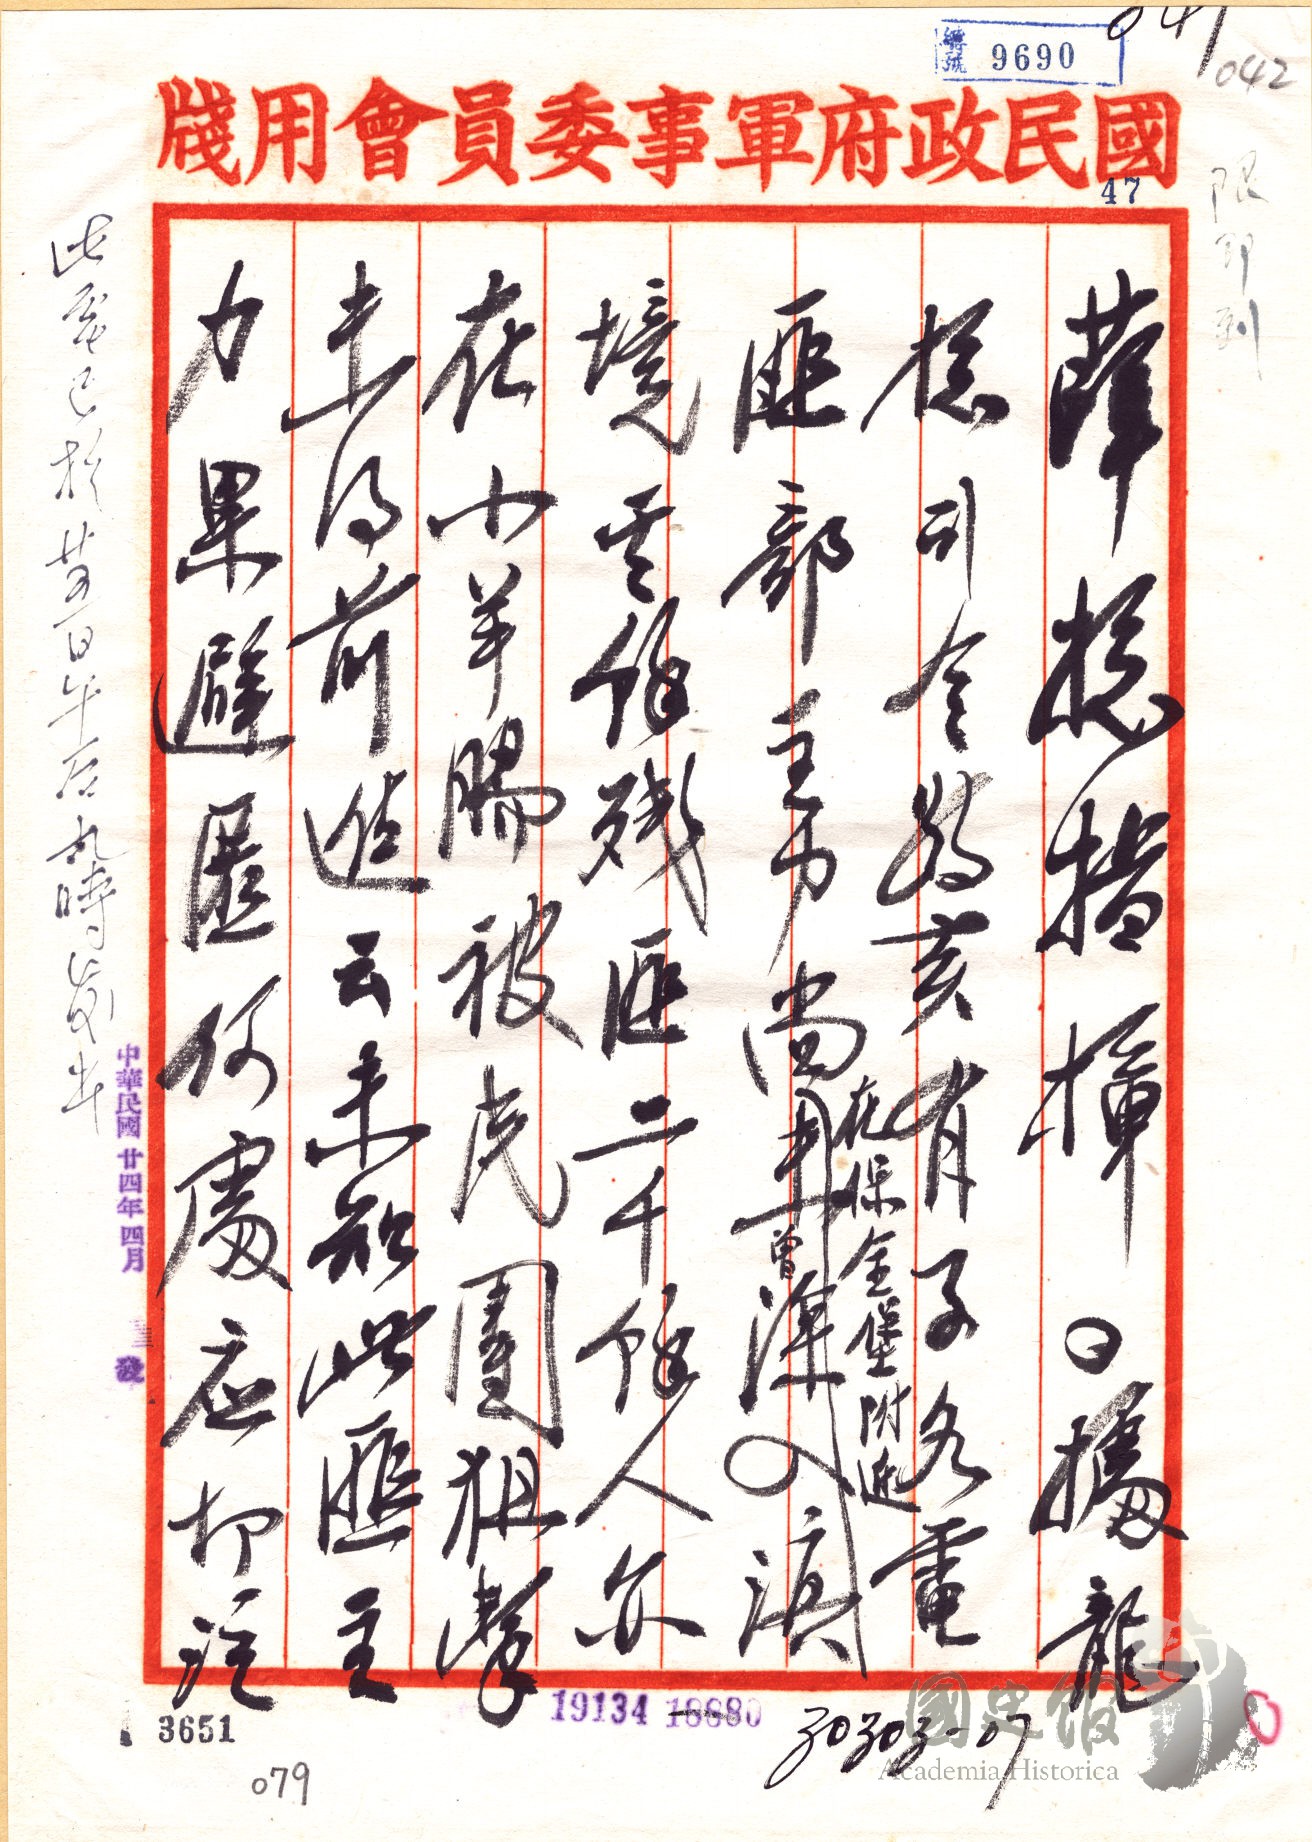 041
042
編號 9690
國民政府軍事委員會用牋
47
限即到
薛總指揮。據龍
總司令敬亥有子各電
在保金堡附近
匪部主力尚未曾深入滇
境云。但殘匪二千餘人亦
在小羊腸被民團狙擊
未得前進云。未知此匪主
力果避匿何處。應切注
此電已於廿五日午后九時發出
中華民國廿四年四月
發
3651
19134 18880
30303-07
079
國史館
Academia Historica